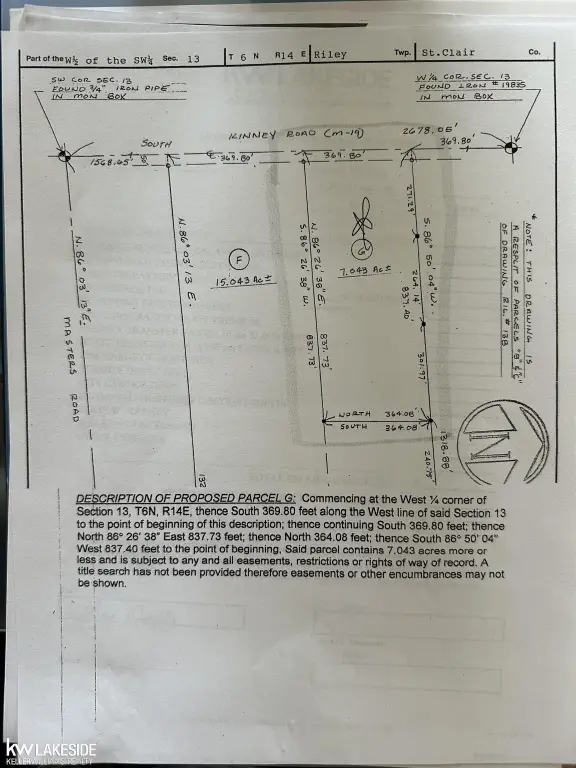 Part of the W½ of the SW¼ Sec. 13 T 6 N R14 E Riley Twp. St.Clair Co.
SW COR SEC. 13
FOUND 3/4" IRON PIPE
IN MON BOX
W 1/4 COR. SEC. 13
FOUND IRON # 19835
IN MON BOX
KINNEY ROAD (M-19)
2678.05'
SOUTH
1568.65'
369.80'
369.80'
369.80'
N. 86° 03' 13" E.
MASTERS ROAD
N. 86° 03' 13 E.
F
15.043 Ac±
N. 86° 26' 38" E.
S. 86° 26' 38" W.
837.73'
837.73'
G
7.043 Ac±
271.29
S. 86° 50' 04" W.
264.14
837.40'
301.97'
NORTH 364.08'
SOUTH 364.08'
1318.88'
240.79'
132
* NOTE: THIS DRAWING IS
A RESPLIT OF PARCELS "B" & "C"
OF DRAWING
N
DESCRIPTION OF PROPOSED PARCEL G: Commencing at the West ¼ corner of
Section 13, T6N, R14E, thence South 369.80 feet along the West line of said Section 13
to the point of beginning of this description; thence continuing South 369.80 feet; thence
North 86° 26' 38" East 837.73 feet; thence North 364.08 feet; thence South 86° 50' 04"
West 837.40 feet to the point of beginning. Said parcel contains 7.043 acres more or
less and is subject to any and all easements, restrictions or rights of way of record. A
title search has not been provided therefore easements or other encumbrances may not
be shown.
kw LAKESIDE
KELLERWILLIAMS REALTY